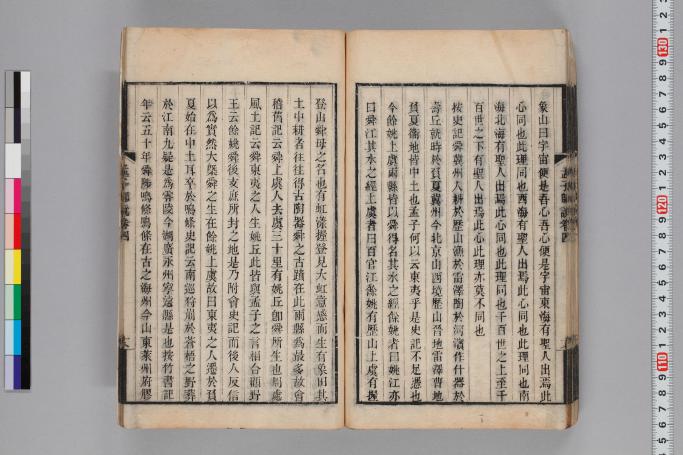 象山曰宇宙便是吾心吾心便是宇宙東海有聖人出焉此
心同也此理同也西海有聖人出焉此心同也此理同也南
海北海有聖人出焉此心同也此理同也千百世之上至千
百世之下有聖人出焉此心此理亦莫不同也
按史記舜冀州人耕於歷山漁於雷澤陶於河濱作什器於
壽丘就時於負夏冀州今北京山西境歷山晉地雷澤曹地
負夏衞地皆中土也孟子何以云東夷乎是史記不足憑也
今餘姚上虞兩縣皆以舜得名其水之經餘姚者曰姚江亦
曰舜江其水之經上虞者曰百官江餘姚有歷山上虞有握
登山舜母之名也有虹樣握登見大虹意感而生有象田其
土中耕者往往得古陶器舜之古蹟在此兩縣爲最多故會
稽舊記云舜上虞人去虞三十里有姚丘卽舜所生也周處
風土記云舜東夷之人生姚丘此皆與孟子之言相合顧野
王云餘姚舜後支庶所封之地是乃附會史記而後人反信
以爲實然大槩舜之生在餘姚上虞故曰東夷之人遷於負
夏始在中土耳卒於鳴條史記云南巡狩崩於蒼梧之野葬
於江南九疑是爲零陵今湖廣永州寧遠縣是也按竹書記
年云五十年舜陟鳴條鳴條在古之海州今山東萊州府膠